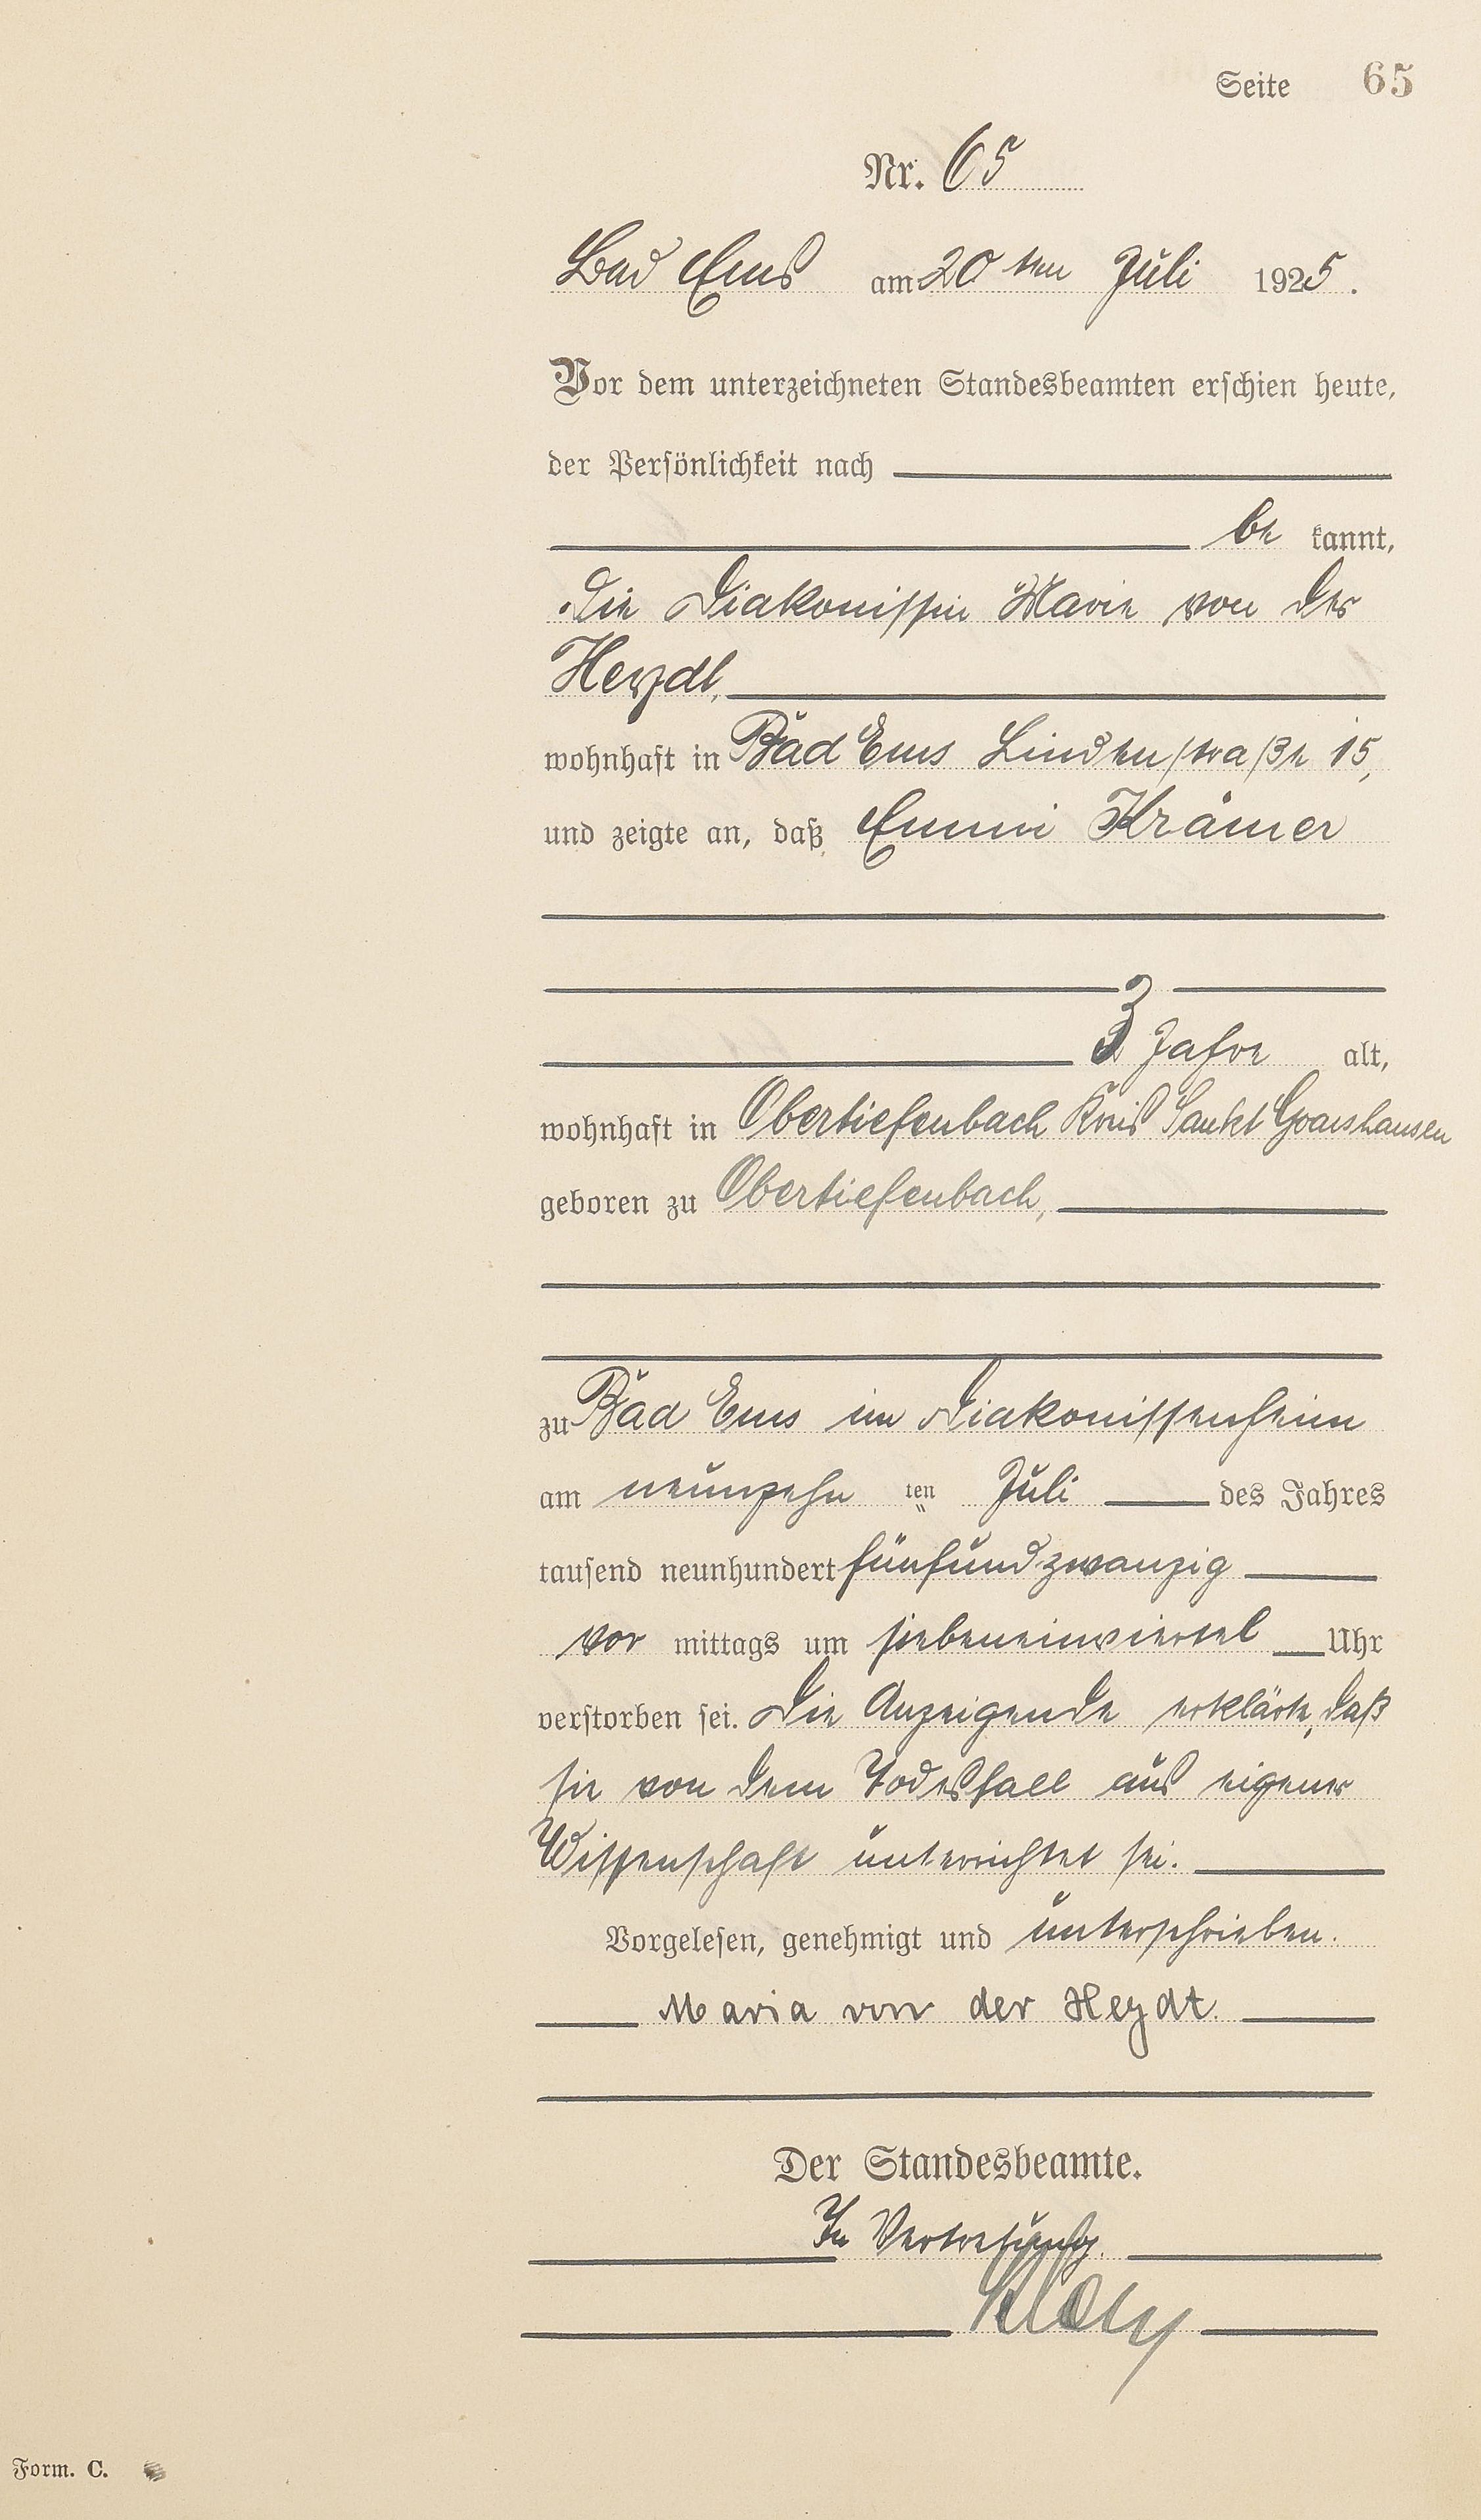 Seite 65
Nr. 65
Bad Ems am 20ten Juli 1925.
Vor dem unterzeichneten Standesbeamten erschien heute,
der Persönlichkeit nach
be kannt,
die Diakonissin Marie von der
Heydt,
wohnhaft in Bad Ems Lindenstraße 15,
und zeigte an, daß Emmi Krämer
3 Jahre alt,
wohnhaft in Obertiefenbach Kreis Sankt Goarshausen
geboren zu Obertiefenbach,
zu Bad Ems im Diakonissenheim
am neunzehn ten Juli des Jahres
tausend neunhundert fünfundzwanzig
vor mittags um siebeneinviertel Uhr
verstorben sei. Die Anzeigende erklärte, daß
sie von dem Todesfall aus eigener
Wissenschaft unterrichtet sei.
Vorgelesen, genehmigt und unterschrieben.
Maria von der Heydt.
Der Standesbeamte.
In Vertretung.
Form. C.